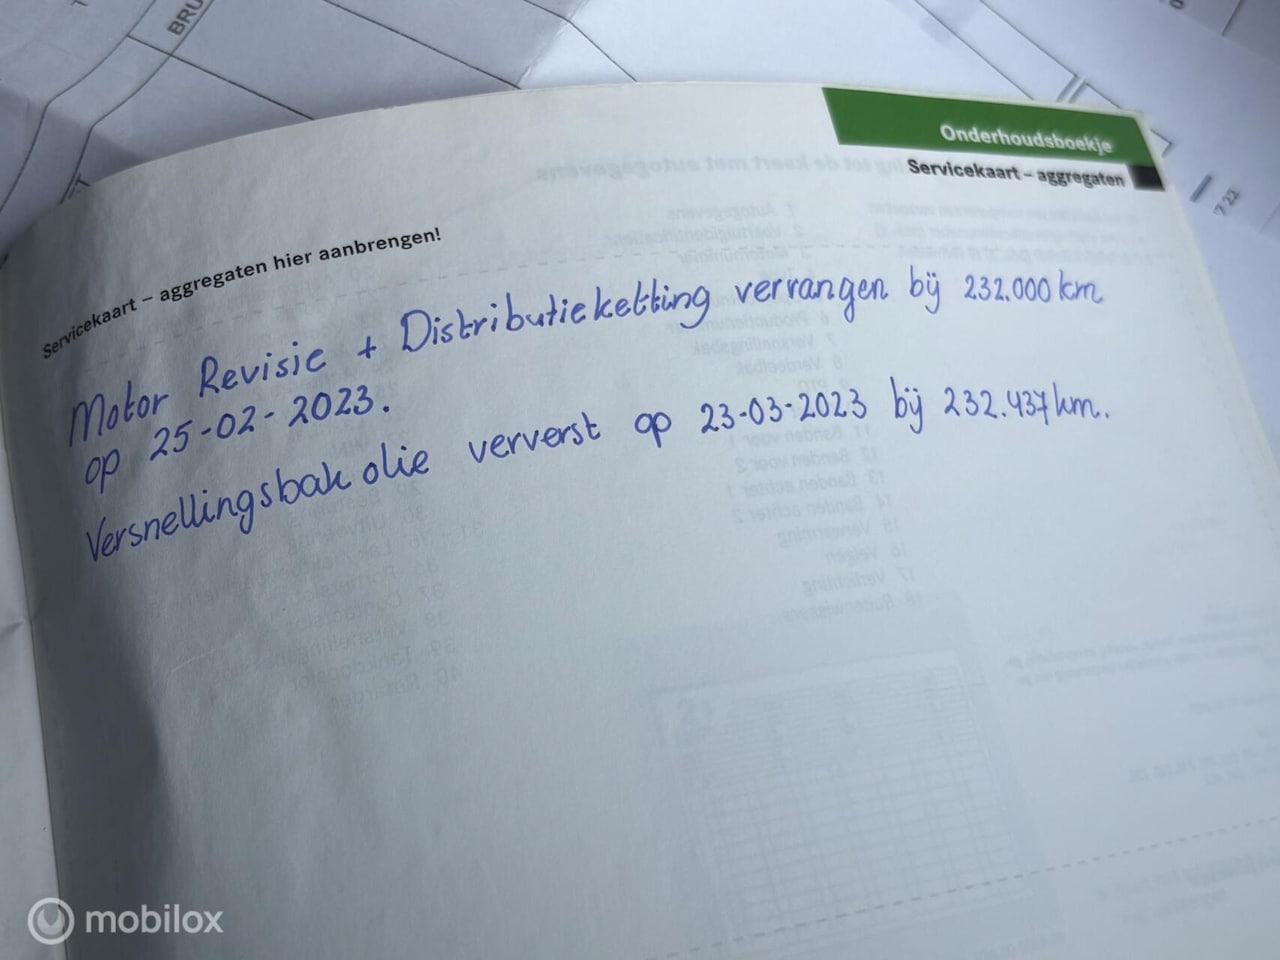 BRU
Onderhoudsboekje
Servicekaart – aggregaten
7.22
Servicekaart – aggregaten hier aanbrengen!
Motor Revisie + Distributieketting verrangen bij 232.000 km
op 25-02-2023.
Versnellingsbak olie ververst op 23-03-2023 bij 232.437 km.
mobilox